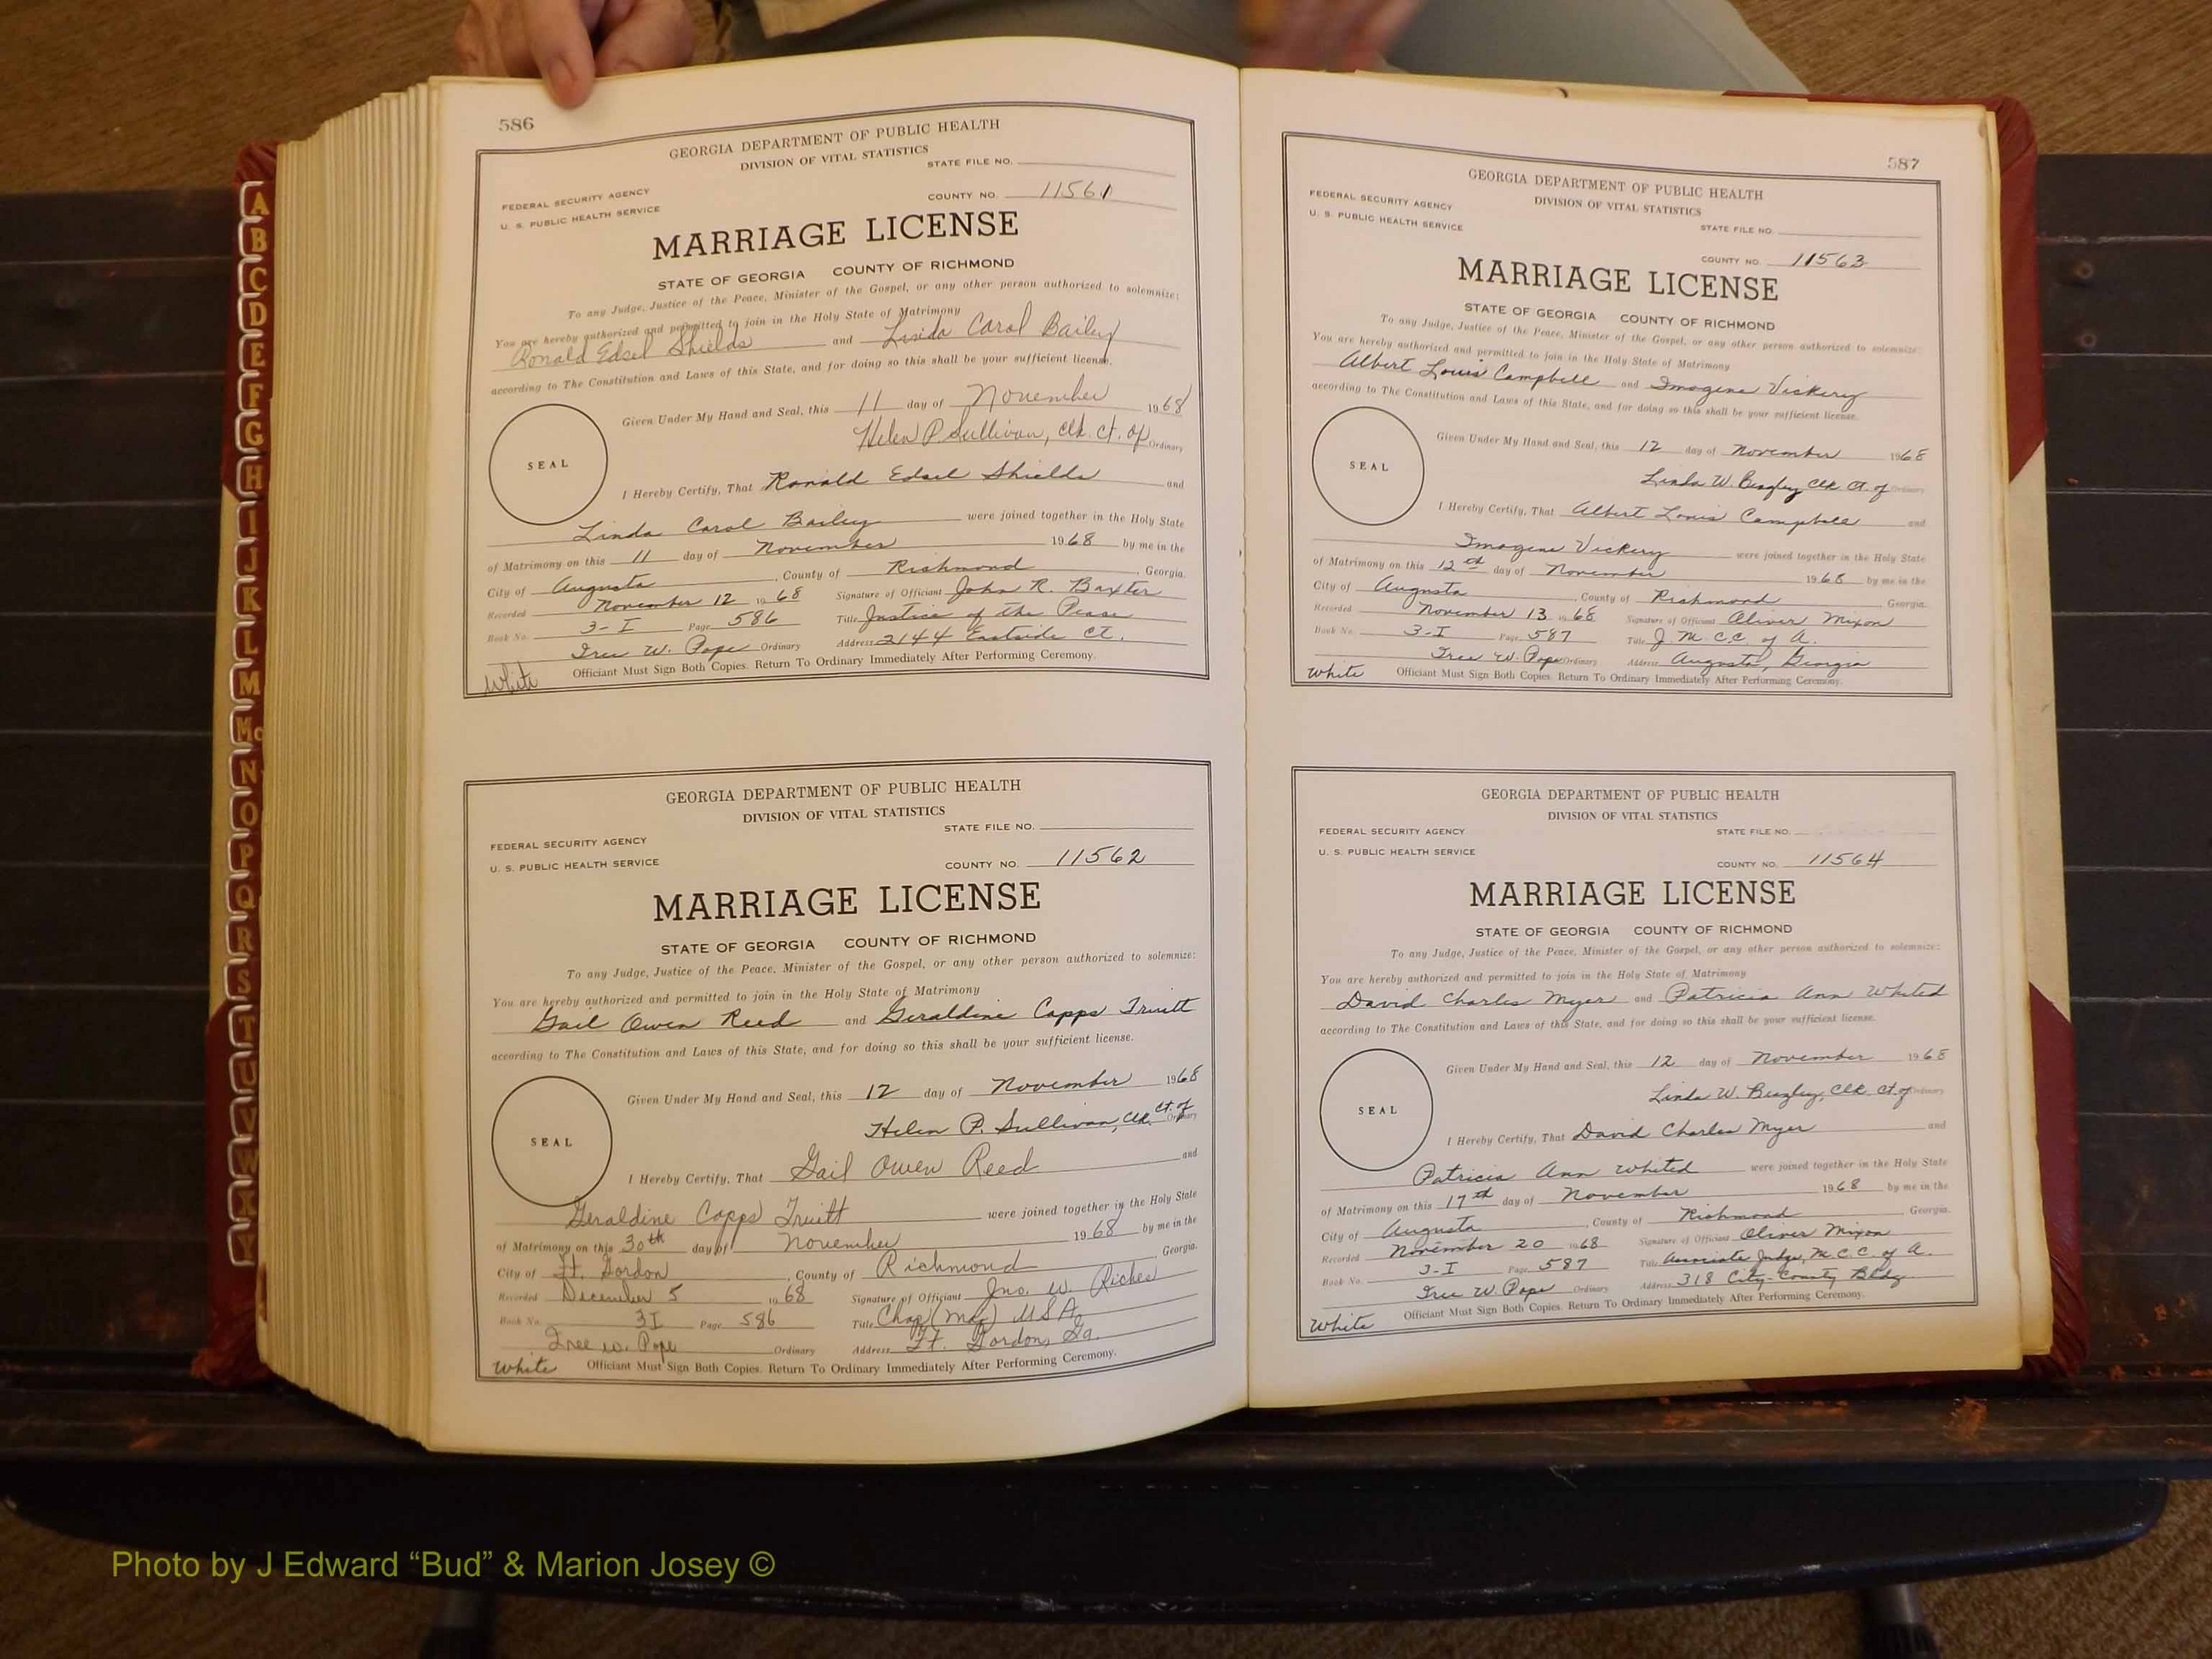 A
B
C
D
E
F
G
H
I
J
K
L
M
Mc
N
O
P
Q
R
S
T
U
V
W
X
Y
586
GEORGIA DEPARTMENT OF PUBLIC HEALTH
DIVISION OF VITAL STATISTICS
STATE FILE NO.
FEDERAL SECURITY AGENCY
U. S. PUBLIC HEALTH SERVICE
COUNTY NO. 11561
MARRIAGE LICENSE
STATE OF GEORGIA COUNTY OF RICHMOND
To any Judge, Justice of the Peace, Minister of the Gospel, or any other person authorized to solemnize:
You are hereby authorized and permitted to join in the Holy State of Matrimony
Ronald Edsel Shields and Linda Carol Bailey
according to The Constitution and Laws of this State, and for doing so this shall be your sufficient license.
Given Under My Hand and Seal, this 11 day of November 1968
Helen P. Sullivan, Clk. Ct. of Ordinary
SEAL
I Hereby Certify, That Ronald Edsel Shields and
Linda Carol Bailey were joined together in the Holy State
of Matrimony on this 11 day of November 1968 by me in the
City of Augusta, County of Richmond, Georgia.
Recorded November 12 1968 Signature of Officiant John R. Baxter
Book No. 3-I Page 586 Title Justice of the Peace
Tree W. Pope Ordinary Address 2144 Eastside Ct.
White Officiant Must Sign Both Copies. Return To Ordinary Immediately After Performing Ceremony.
GEORGIA DEPARTMENT OF PUBLIC HEALTH
DIVISION OF VITAL STATISTICS
STATE FILE NO.
FEDERAL SECURITY AGENCY
U. S. PUBLIC HEALTH SERVICE
COUNTY NO. 11562
MARRIAGE LICENSE
STATE OF GEORGIA COUNTY OF RICHMOND
To any Judge, Justice of the Peace, Minister of the Gospel, or any other person authorized to solemnize:
You are hereby authorized and permitted to join in the Holy State of Matrimony
Gail Owen Reed and Geraldine Capps Truitt
according to The Constitution and Laws of this State, and for doing so this shall be your sufficient license.
Given Under My Hand and Seal, this 12 day of November 1968
Helen P. Sullivan, Clk. Ct. of Ordinary
SEAL
I Hereby Certify, That Gail Owen Reed and
Geraldine Capps Truitt were joined together in the Holy State
of Matrimony on this 30th day of November 1968 by me in the
City of Ft. Gordon, County of Richmond, Georgia.
Recorded December 5 1968 Signature of Officiant Jno. W. Riches
Book No. 3I Page 586 Title Chap (Maj) USA
Tree W. Pope Ordinary Address Ft. Gordon, Ga.
White Officiant Must Sign Both Copies. Return To Ordinary Immediately After Performing Ceremony.
587
GEORGIA DEPARTMENT OF PUBLIC HEALTH
DIVISION OF VITAL STATISTICS
FEDERAL SECURITY AGENCY
U. S. PUBLIC HEALTH SERVICE
STATE FILE NO.
COUNTY NO. 11563
MARRIAGE LICENSE
STATE OF GEORGIA COUNTY OF RICHMOND
To any Judge, Justice of the Peace, Minister of the Gospel, or any other person authorized to solemnize:
You are hereby authorized and permitted to join in the Holy State of Matrimony
Albert Louis Campbell and Imogene Vickery
according to The Constitution and Laws of this State, and for doing so this shall be your sufficient license.
Given Under My Hand and Seal, this 12 day of November 1968
Linda W. Beazley Clk Ct. of Ordinary
SEAL
I Hereby Certify, That Albert Louis Campbell and
Imogene Vickery were joined together in the Holy State
of Matrimony on this 12th day of November 1968 by me in the
City of Augusta, County of Richmond, Georgia.
Recorded November 13 1968 Signature of Officiant Oliver Mixon
Book No. 3-I Page 587 Title J. M. C.C. of A.
Tree W. Pope Ordinary Address Augusta, Georgia
White Officiant Must Sign Both Copies. Return To Ordinary Immediately After Performing Ceremony.
GEORGIA DEPARTMENT OF PUBLIC HEALTH
DIVISION OF VITAL STATISTICS
FEDERAL SECURITY AGENCY
STATE FILE NO.
U. S. PUBLIC HEALTH SERVICE
COUNTY NO. 11564
MARRIAGE LICENSE
STATE OF GEORGIA COUNTY OF RICHMOND
To any Judge, Justice of the Peace, Minister of the Gospel, or any other person authorized to solemnize:
You are hereby authorized and permitted to join in the Holy State of Matrimony
David Charles Myer and Patricia Ann Whited
according to The Constitution and Laws of this State, and for doing so this shall be your sufficient license.
Given Under My Hand and Seal, this 12 day of November 1968
Linda W. Beazley, Clk. Ct. of Ordinary
SEAL
I Hereby Certify, That David Charles Myer and
Patricia Ann Whited were joined together in the Holy State
of Matrimony on this 17th day of November 1968 by me in the
City of Augusta, County of Richmond, Georgia.
Recorded November 20 1968 Signature of Officiant Oliver Mixon
Book No. 3-I Page 587 Title Associate Judge, M.C.C. of A.
Tree W. Pope Ordinary Address 318 City-County Bldg
White Officiant Must Sign Both Copies. Return To Ordinary Immediately After Performing Ceremony.
Photo by J Edward “Bud” & Marion Josey ©